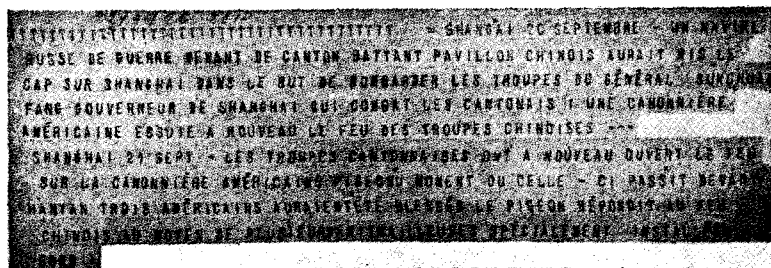 = SHANGAI 20 SEPTEMBRE - UN NAVIRE
RUSSE DE GUERRE VENANT DE CANTON BATTANT PAVILLON CHINOIS AURAIT MIS LE
CAP SUR SHANGHAI DANS LE BUT DE BOMBARDER LES TROUPES DU GÉNÉRAL
FANG GOUVERNEUR DE SHANGHAI QUI COMBAT LES CANTONAIS UNE CANONNIÈRE
AMÉRICAINE ESSUIE A NOUVEAU LE FEU DES TROUPES CHINOISES ---
SHANGHAI 21 SEPT - LES TROUPES CANTONNAISES ONT A NOUVEAU OUVERT LE FEU
SUR LA CANONNIÈRE AMÉRICAINE MOMENT OU CELLE - CI PASSIT DEVANT
TROIS AMÉRICAINS LE PIGEON RÉPONDIT AU FEU
CHINOIS AU MOYEN DE SPÉCIALEMENT